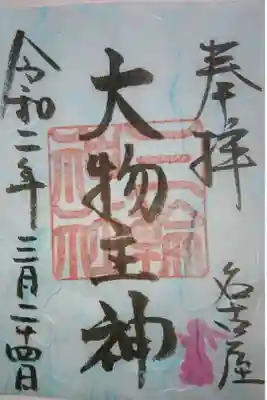 奉拝
名古屋
大物主神
令和二年三月二十四日